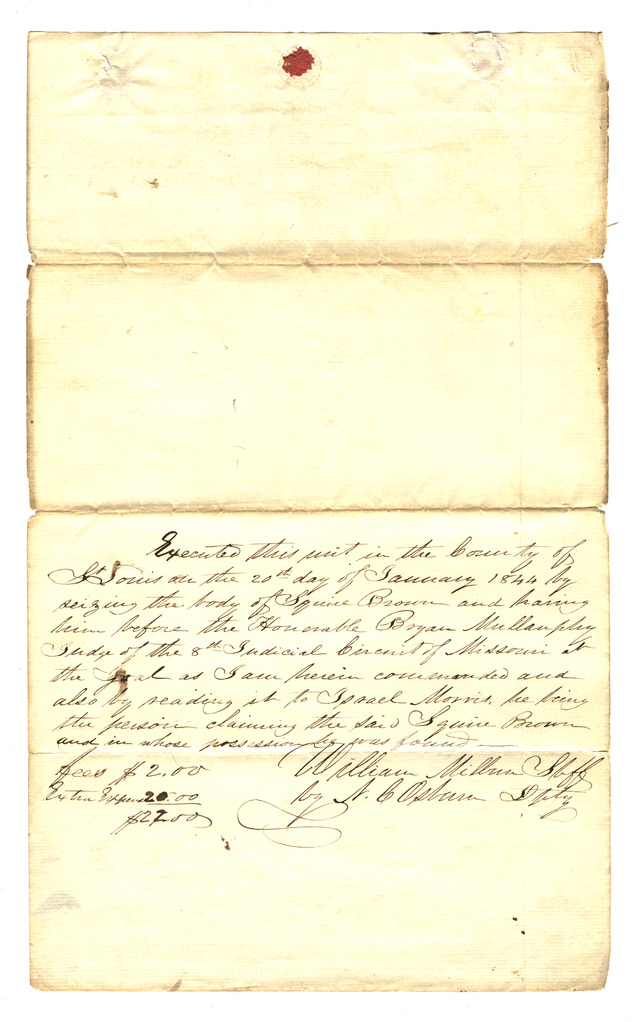 Executed this writ in the County of
St Louis on the 20th day of January 1844 by
seizing the body of Squire Brown and having
him before the Honorable Bryan Mullanphy
Judge of the 8th Judicial Circuit of Missouri at
the Goal as I am herein commanded and
also by reading it to Israel Morris, he being
the person claiming the said Squire Brown
and in whose possession he was found —
fees $2.00 William Milburn Shff
Extra Expens 20.00 by N. C Osburn Dpty
$22.00